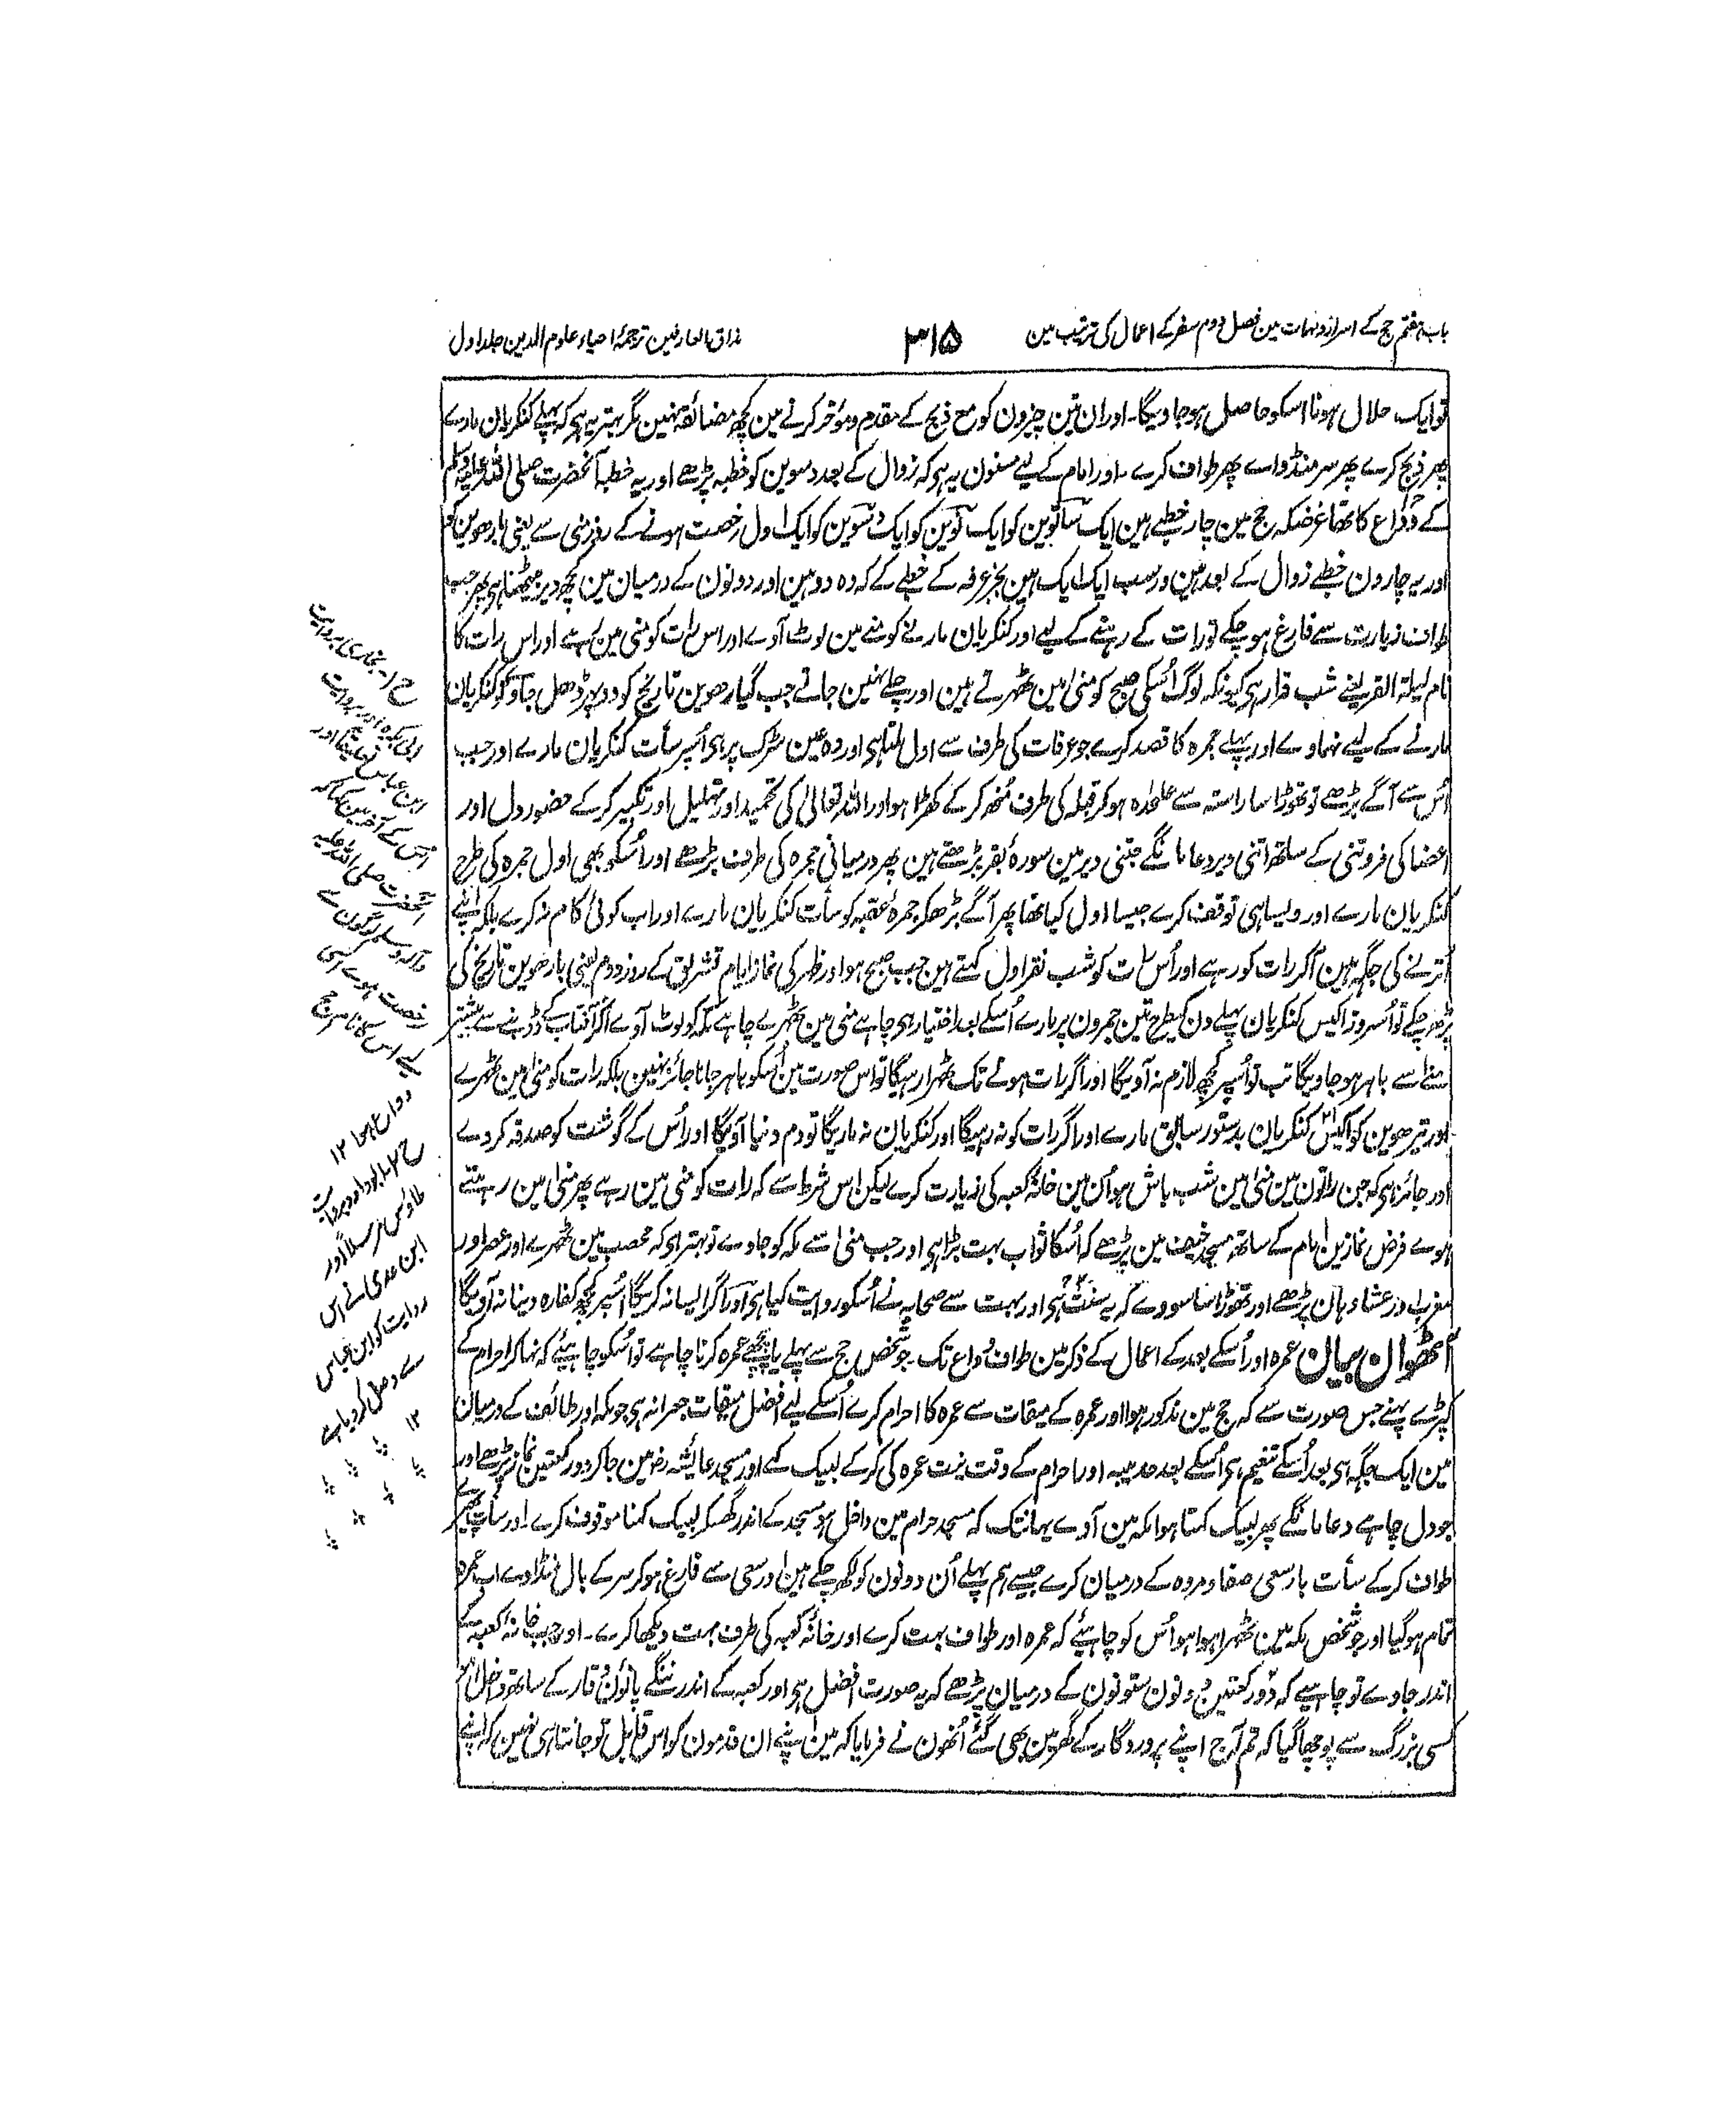 باب ہفتم حج کے اسرار و مہمات مین فصل دوم سفر کے اعمال کی ترتیب مین
۳۱۵
مذاق العارفین ترجمۂ احیاء علوم الدین جلد اول
تو ایک حلال ہونا اسکو حاصل ہو جاویگا۔ اور ان تین چیزون کو مع ذبح کے مقدم و موخر کرنے مین کچھ مضائقہ نہین مگر بہتر یہ ہی کہ پہلے کنکریان مارے
پھر ذبح کرے پھر سر منڈواے پھر طواف کرے۔ اور امام کے لیے مسنون یہ ہی کہ زوال کے بعد دسوین کو خطبہ پڑھے اور یہ خطبہ آنحضرت صلی اللہ علیہ وسلم
کے وداع کا تھا غرضکہ حج مین چار خطبے ہین ایک ساتوین کو ایک نوین کو ایک دسوین کو ایک اول رخصت ہونے کے روز منی سے یعنی بارھوین کو
اور یہ چارون خطبے زوال کے بعد ہین اور سب ایک ایک ہین بجز عرفہ کے خطبے کے کہ وہ دو ہین اور دونون کے درمیان مین کچھ دیر بیٹھنا ہی پھر جب
طواف زیارت سے فارغ ہو چکے تو رات کے رہنے کے لیے اور کنکریان مارنے کو منے مین لوٹ آوے اور اس رات کو منی مین رہے اور اس رات کا
نام لیلۃ القر یعنے شب قرار ہی کیونکہ لوگ اُسکی صبح کو منیٰ مین ٹھرتے ہین اور چلے نہین جاتے جب گیارھوین تاریخ کو دوپہر ڈھل جاوے تو کنکریان
مارنے کے لیے نہاوے اور پہلے جمرہ کا قصد کرے جو عرفات کی طرف سے اول ملتا ہی اور وہ عین سڑک پر ہی اُسپر سات کنکریان مارے اور جب
اُس سے آگے بڑھے تو تھوڑا سا راستہ سے علٰحدہ ہو کر قبلہ کی طرف مُنھ کر کے کھڑا ہو اور اللہ تعالیٰ کی تحمید اور تہلیل اور تکبیر کر کے حضور دل اور
اعضا کی فروتنی کے ساتھ اتنی دیر دعا مانگے جتنی دیر مین سورۂ بقر پڑھتے ہین پھر درمیانی جمرہ کی طرف بڑھے اور اُسکو بھی اول جمرہ کی طرح
کنکریان مارے اور ویسا ہی توقف کرے جیسا اول کیا تھا پھر آگے بڑھکر جمرۂ عقبہ کو سات کنکریان مارے اور اب کوئی کام نہ کرے بلکہ اپنے
اُترنے کی جگہ مین آکر رات کو رہے اور اُس رات کو شب نفر اول کہتے ہین جب صبح ہو اور ظہر کی نماز ایام تشریق کے روز دوم یعنی بارھوین تاریخ کی
پڑھ چکے تو اُسروز اکیس کنکریان پہلے دن کیطرح تین جمرون پر مارے اُسکے بعد اختیار ہی چاہے منی مین ٹھہرے چاہے مکہ کو لوٹ آوے اگر آفتاب کے ڈوبنے سے پیشتر
منے سے باہر ہو جاویگا تب تو اُسپر کچھ لازم نہ آویگا اور اگر رات ہونے تک ٹھہرا رہیگا تو اس صورت مین اُسکو باہر جانا جائز نہین بلکہ رات کو منیٰ مین ٹھہرے
اور تیرھوین کو اکیس کنکریان بدستور سابق مارے اور اگر رات کو نہ رہیگا اور کنکریان نہ ماریگا تو دم دنیا آویگا اور اُس کے گوشت کو صدقہ کر دے
اور جائز ہی کہ جن راتون مین منیٰ مین شب باش ہو اُن مین خانۂ کعبہ کی زیارت کرے لیکن اس شرط سے کہ رات کو منی مین رہے پھر منیٰ مین رہتے
ہوے فرض نمازین امام کے ساتھ مسجد خیف مین پڑھے کہ اُسکا ثواب بہت بڑا ہی اور جب منیٰ سے مکہ کو جاوے تو بہتر ہی کہ محصب مین ٹھہرے اور عصر اور
مغرب اور عشا وہان پڑھے اور تھوڑا سا سووے کہ یہ سنت ہی اور بہت سے صحابہ نے اُسکو روایت کیا ہی اور اگر ایسا نہ کریگا اُسپر کچھ کفارہ دینا نہ آویگا
آٹھوان بیان عمرہ اور اُسکے بعد کے اعمال کے ذکر مین طواف وداع تک۔ جو شخص حج سے پہلے یا پیچھے عمرہ کرنا چاہے تو اُسکو چاہیئے کہ نہا کر احرام کے
کپڑے پہنے جس صورت سے کہ حج مین مذکور ہوا اور عمرہ کے میقات سے عمرہ کا احرام کرے اُسکے لیے افضل میقات جعرانہ ہی جو مکہ اور طائف کے درمیان
مین ایک جگہ ہی بعد اُسکے تنعیم ہی اُسکے بعد حدیبیہ اور احرام کے وقت نیت عمرہ کی کر کے لبیک کہے اور مسجد عائشہ رض مین جا کر دو رکعتین نماز پڑھے اور
جو دل چاہے دعا مانگے پھر لبیک کہتا ہوا مکہ مین آوے یہانتک کہ مسجد حرام مین داخل ہو مسجد کے اندر گھسکر لبیک کہنا موقوف کرے اور سات پھیرے
طواف کر کے سات بار سعی صفا و مروہ کے درمیان کرے جیسے ہم پہلے اُن دونون کو لکھ چکے ہین اور سعی سے فارغ ہو کر سر کے بال منڈاوے اب عمرہ
تمام ہو گیا اور جو شخص مکہ مین ٹھہرا ہوا ہو اُس کو چاہیئے کہ عمرہ اور طواف بہت کرے اور خانۂ کعبہ کی طرف بہت دیکھا کرے۔ اور جب خانۂ کعبہ کے
اندر جاوے تو چاہیے کہ دو رکعتین دونون ستونون کے درمیان پڑھے کہ یہ صورت افضل ہی اور کعبہ کے اندر ننگے پانوُن وقار کے ساتھ داخل ہو
کسی بزرگ سے پوچھا گیا کہ تم آج اپنے پروردگار کے گھر مین بھی گئے اُنھون نے فرمایا کہ مین اپنے ان قدمون کو اس قابل تو جانتا ہی نہین کہ اپنے
ح ۱- بخاری بروایت
ابی بکرہ اور بروایت
ابن عباس تعلیقاً اور
اُس کے آخر مین کہا کہ
آنحضرت صلی اللہ علیہ
وآلہ وسلم لوگون سے
رخصت ہوے اسی
لیے اس کا نام حج
وداع ہوا ۱۲
ح ۲ ابوداود بروایت
طاوس مرسلاً اور
ابن عدی نے اس
روایت کو ابن عباس
سے وصل کر دیا ہے
۱۲